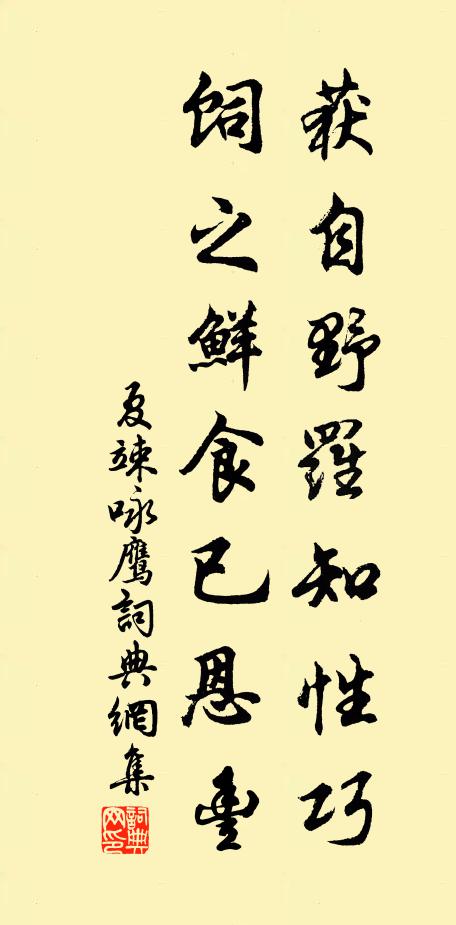 获自野羅知性巧
饲之鮮食已恩豐
夏竦咏鹰詞典網集
詞典網印